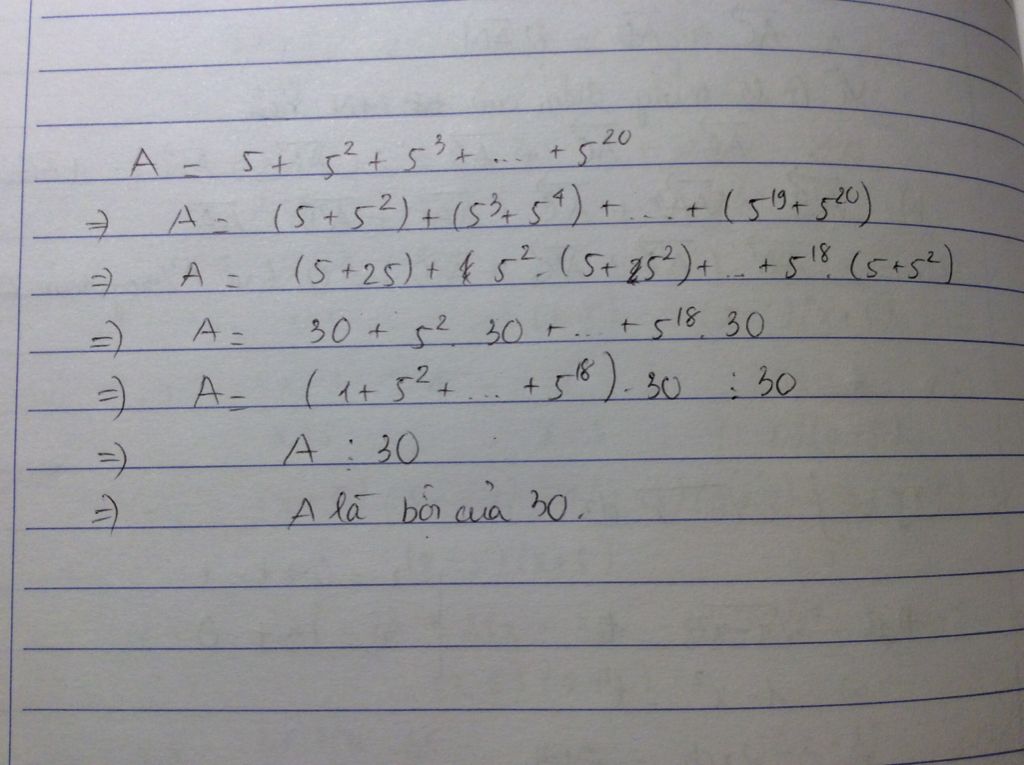 A = 5 + 5² + 5³ + ... + 5²⁰
⇒ A = (5 + 5²) + (5³ + 5⁴) + ... + (5¹⁹ + 5²⁰)
⇒ A = (5 + 25) + 5² . (5 + 5²) + ... + 5¹⁸ . (5 + 5²)
⇒ A = 30 + 5² . 30 + ... + 5¹⁸ . 30
⇒ A = (1 + 5² + ... + 5¹⁸) . 30 ⋮ 30
⇒ A ⋮ 30
⇒ A là bội của 30.